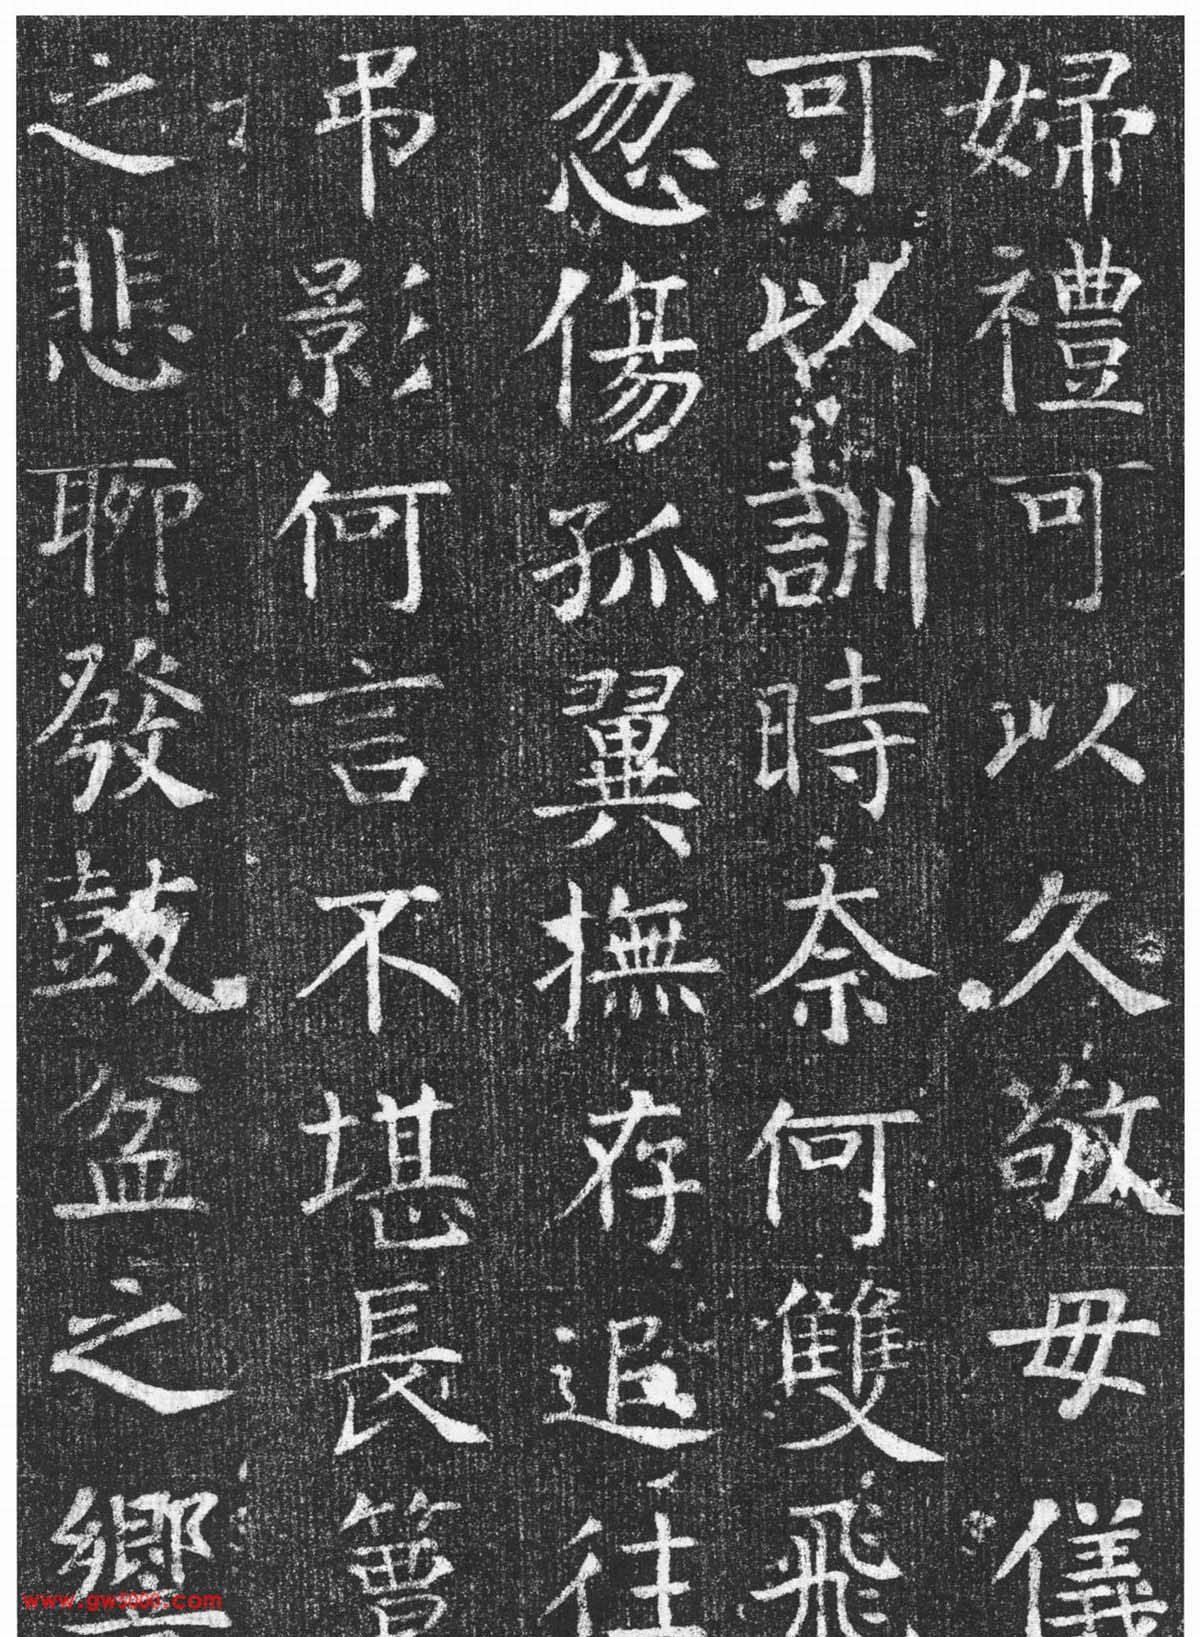 婦禮可以久敬毋儀
可以訓時奈何雙飛
忽傷孤翼撫存追往
弔影何言不堪長簟
之悲聊發鼓盆之響
www.gw5000.com